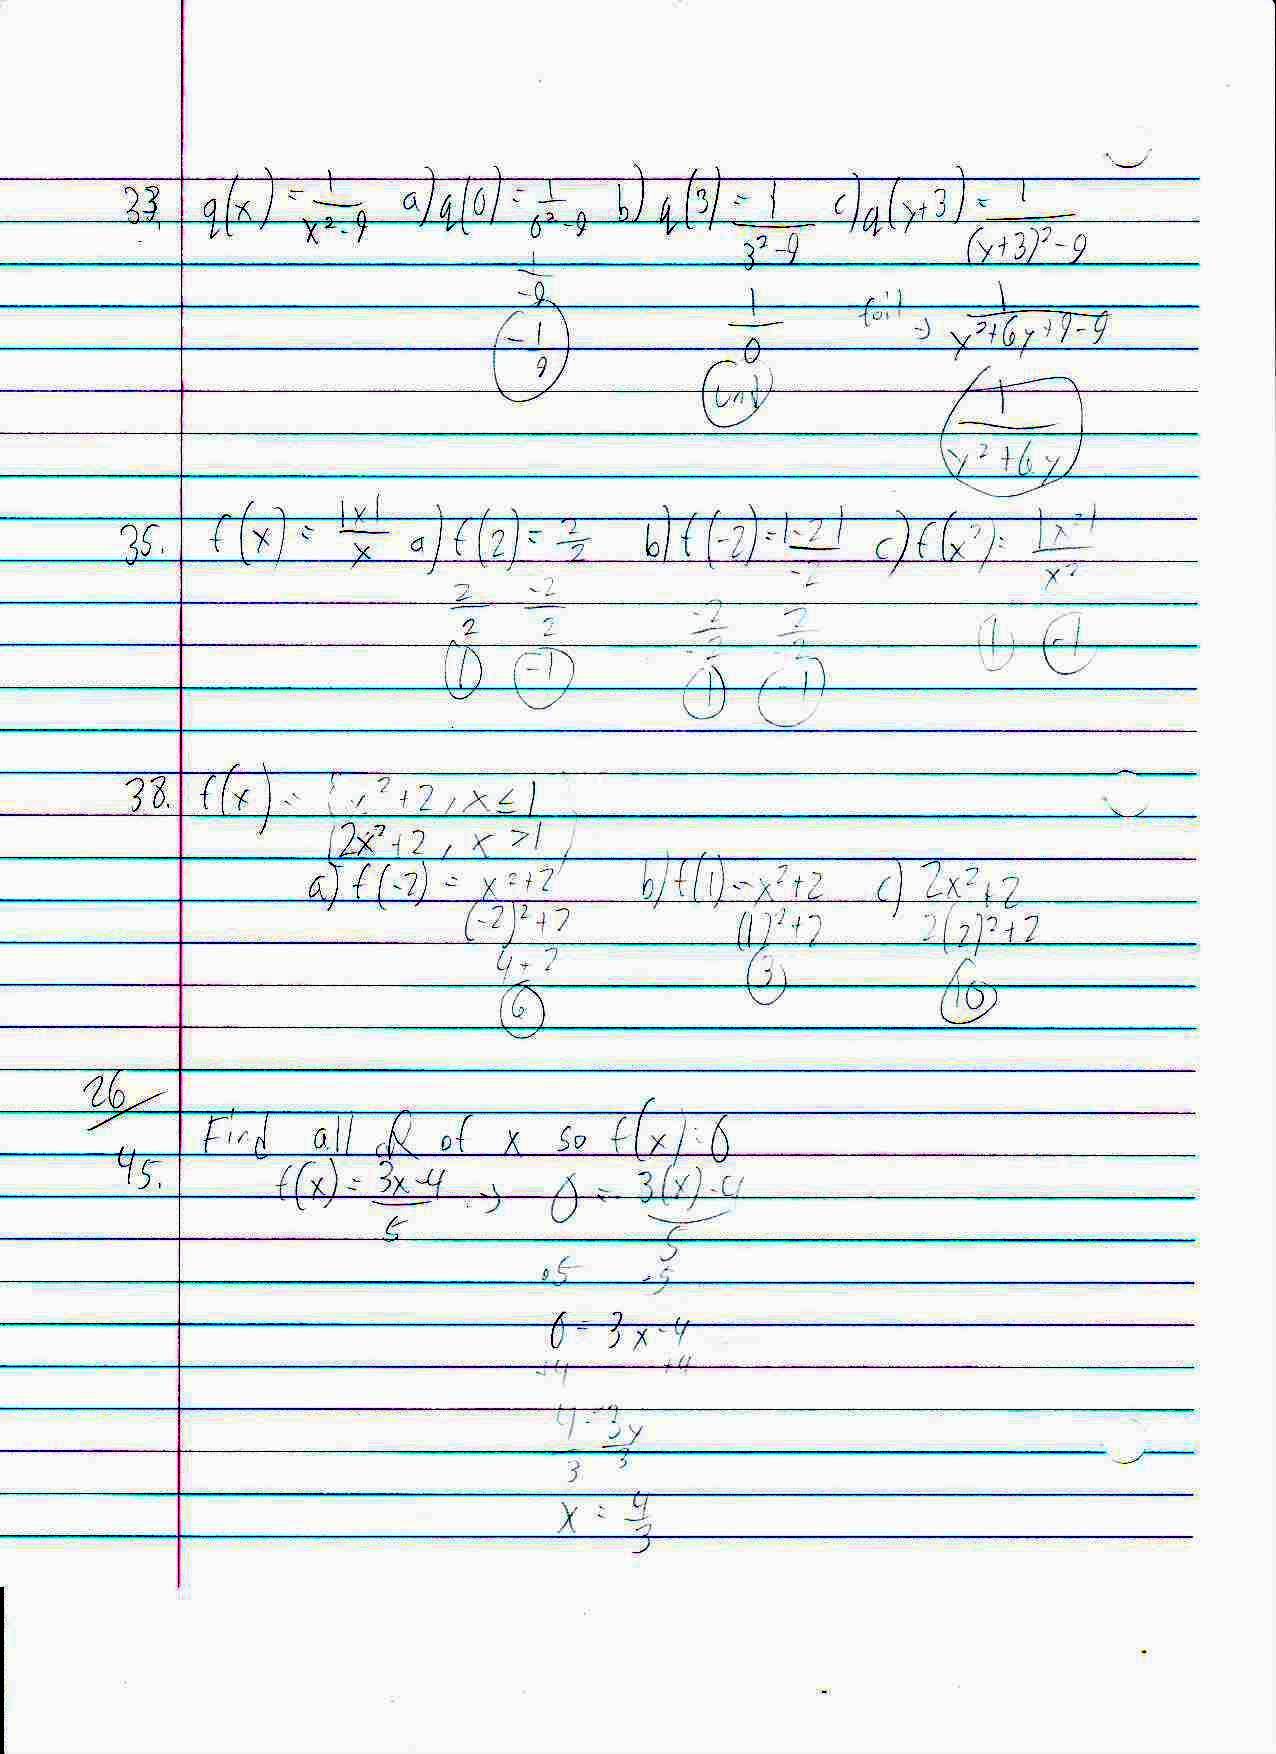 33. q(x) = 1/(x²-9) a) q(0) = 1/(0²-9) b) q(3) = 1/(3²-9) c) q(y+3) = 1/((y+3)²-9)
1/-9 1/0 foil → 1/(y²+6y+9-9)
-1/9 und 1/(y²+6y)
35. f(x) = |x|/x a) f(2) = 2/2 b) f(-2) = |-2|/-2 c) f(x²) = |x²|/x²
2/2 -2/2 -2/-2 2/-2 1 -1
1 -1 1 -1
38. f(x) = { x²+2, x ≤ 1
2x²+2, x > 1
a) f(-2) = x²+2 b) f(1) = x²+2 c) 2x²+2
(-2)²+2 (1)²+2 2(2)²+2
4+2 3 10
6
26
Find all R of x so f(x)=0
45. f(x) = (3x-4)/5 → 0 = (3(x)-4)/5
·5 ·5
0 = 3x-4
+4 +4
4/3 = 3x/3
x = 4/3